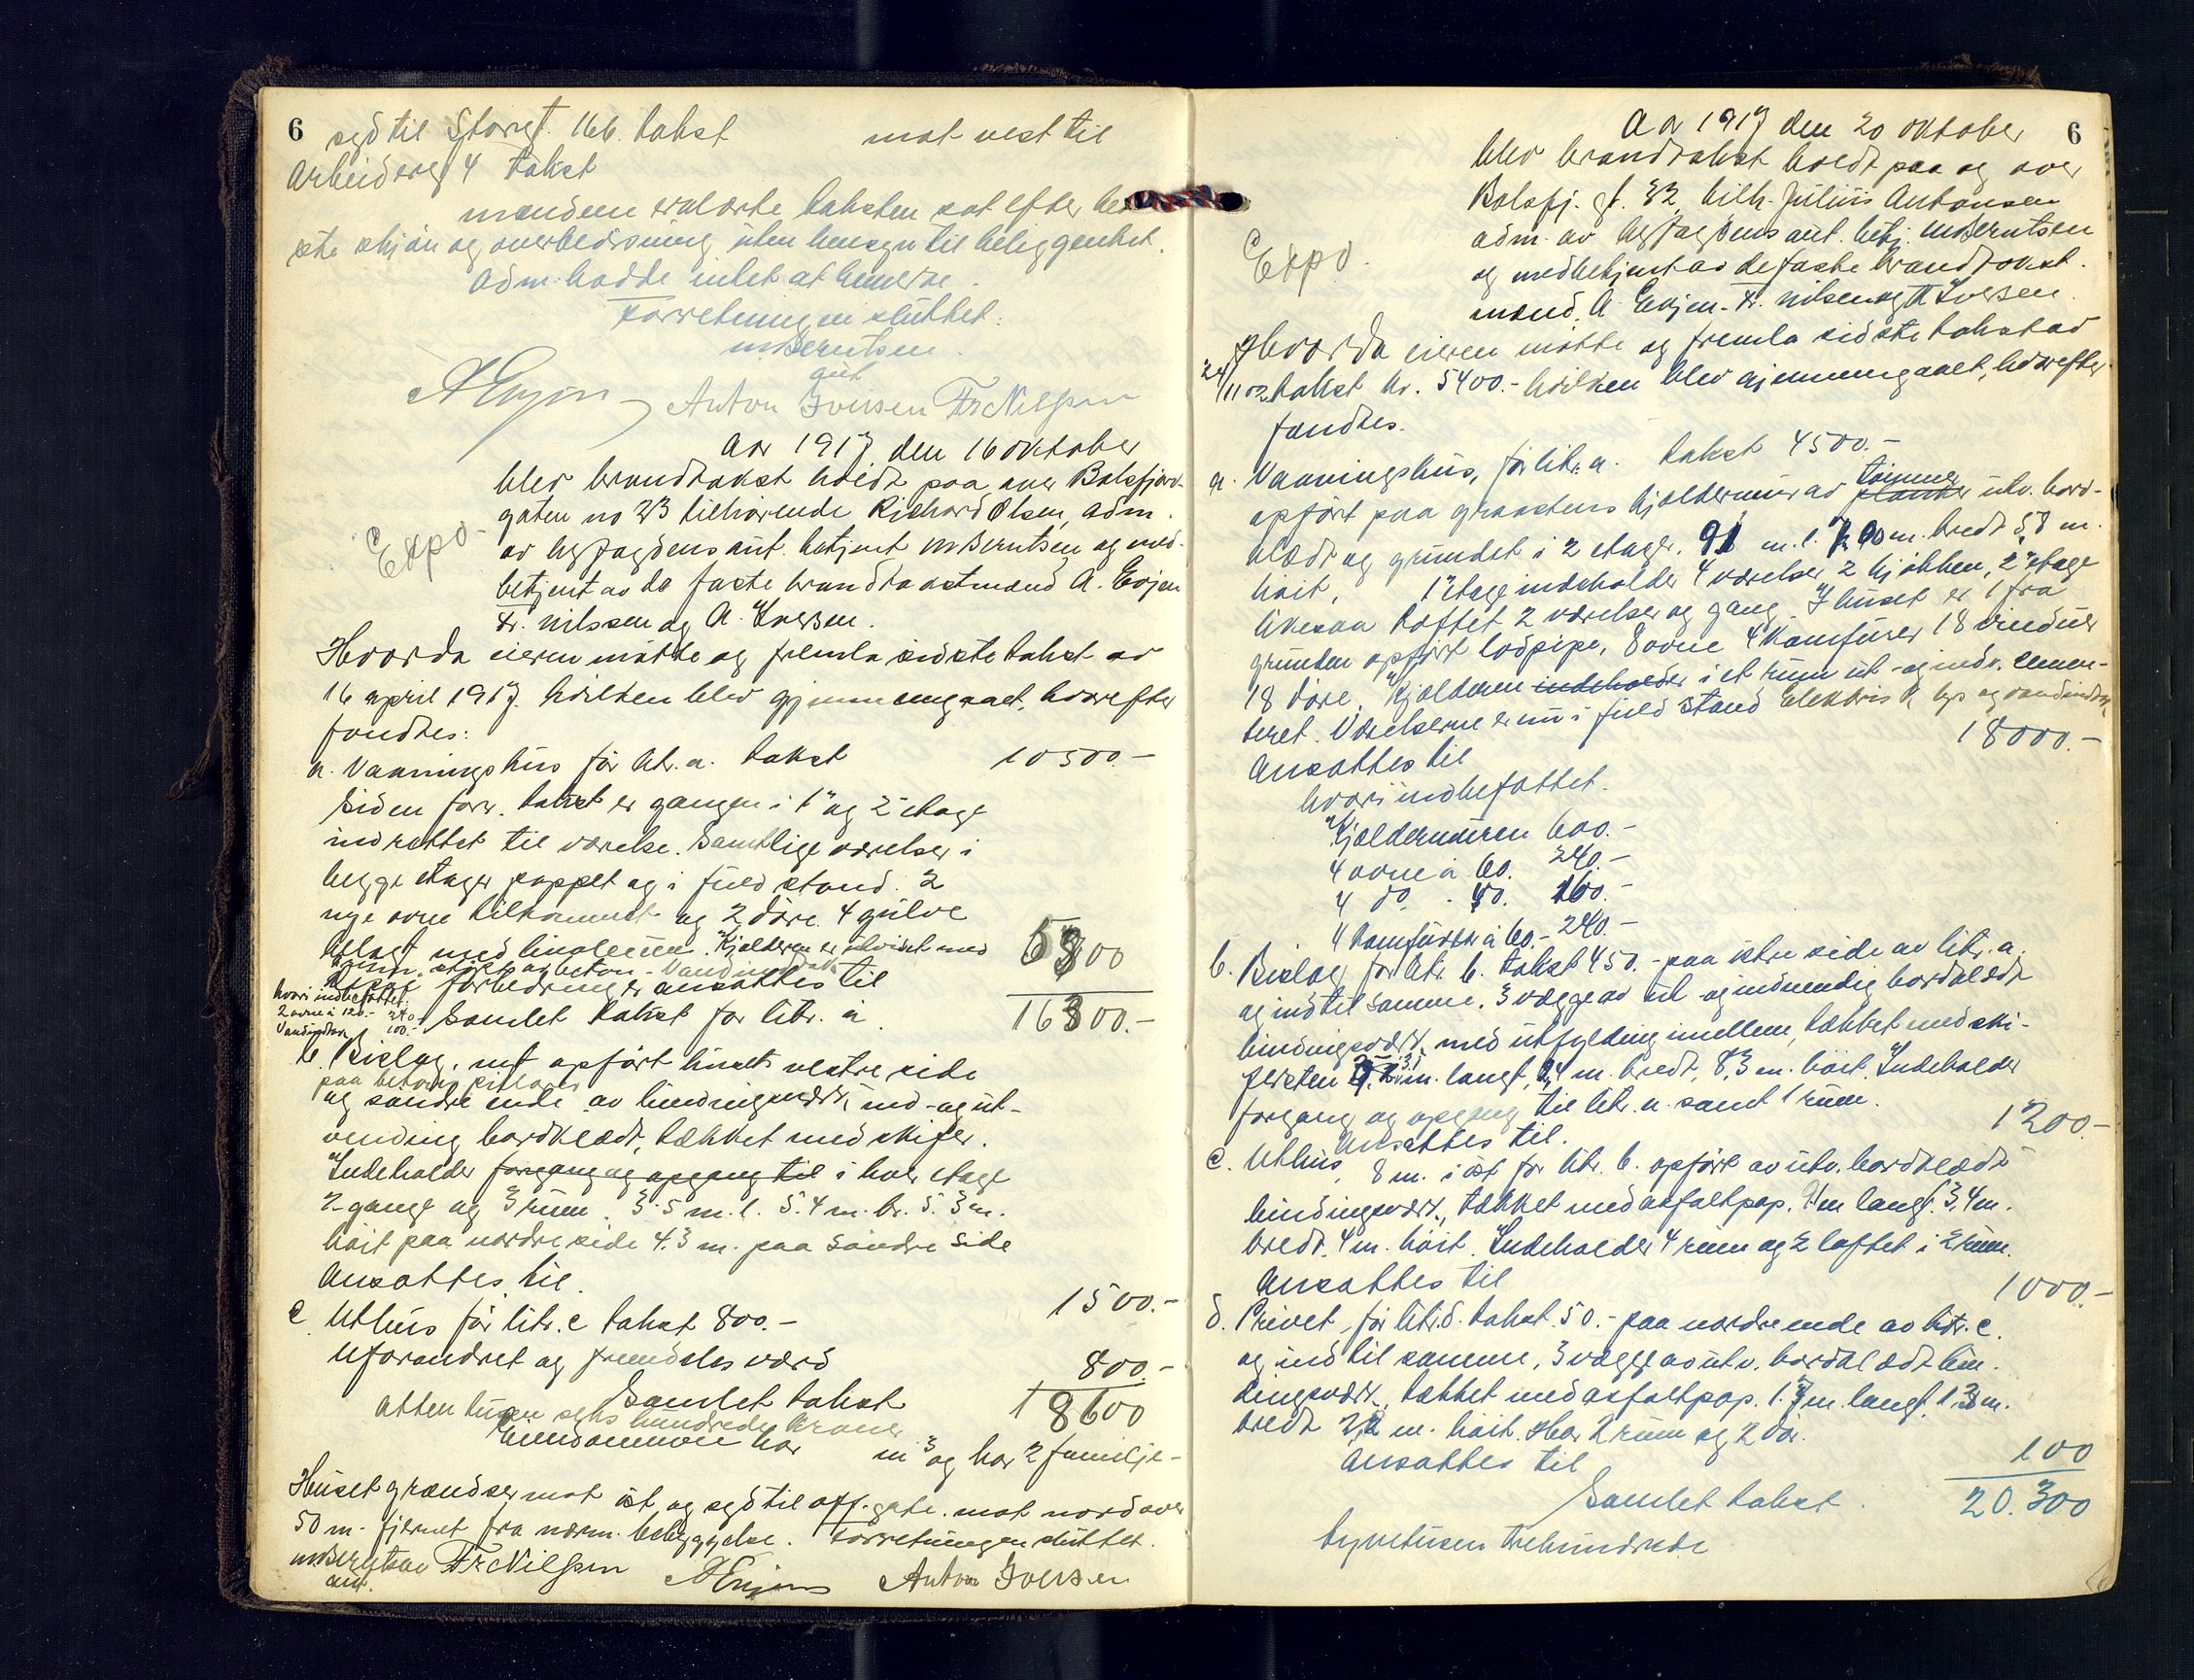 6 syd til Storgt. 166. takst mot vest til
Arbeiderg 4 takst
mændene erklærte taksten sat efter bed
ste skjøn og overbevisning uten hensyn til beliggenhet.
Adm. hadde intet at bemerke.
Forretningen sluttet.
M Berntsen
aut
A Evjen Anton Iversen Fr Nilssen
Aar 1917 den 16 oktober
blev brandtakst holdt paa over Balsfjord-
gaten no 23 tilhørende Richard Olsen, adm.
Expo
av lig. fogdens aut. betjent M Berntsen og med-
betjent av de faste brandtakstmænd A. Evjen
Fr. Nilssen og A. Iversen.
Hvorda eieren møtte og fremla sidste takst av
16 april 1917. hvilken blev gjennemgaaet, hvorefter
fandtes:
a. Vaaningshus før litr. a. takst 10500.-
Siden forr. takst er gangen i 1ste og 2den etage
indrettet til værelse. Samtlige værelser i
begge etager pappet og i fuld stand. 2
nye ovne tilkommet og 2 døre. 4 gulve
belagt med linoleum. Kjelderen er utvidet med
forbedringer ansattes til 5800
hvori indbefattet:
2 ovne à 120.- 240.-
Vandindlæg 100.-
Samlet takst for litr. a 16300.-
b. Bislag, nyt opført husets vestre side
og søndre ende av bindingsverk, ind- og ut-
vendig bordklædt, tækket med skifer.
Indeholder forgang og opgang til i hver etage
2 gange og 3 rum. 3.5 m. l. 5.4 m. br. 5.3 m.
høit paa nordre side 4.3 m. paa søndre side
Ansattes til. 1500.-
c. Uthus før litr. c takst 800.-
Uforandret og fremdeles værd 800.-
Samlet takst 18600
atten tusen seks hundrede kroner
Eiendommen har m3 og har 2 familje-
Huset grændser mot øst og syd til off. gate. mot nord over
50 m. fjernet fra nærm. bebyggelse. Forretningen sluttet.
M Berntsen Fr Nilssen A Evjen Anton Iversen
aut.
Aar 1917 den 20 oktober 6
blev brandtakst holdt paa og over
Balsfj. gt. 32 tilh. Julius Antonsen
adm. av lig. fogdens aut. betj. M Berntsen
Expo.
og medbetjent av de faste brandtakst.
mænd. A. Evjen. Fr. Nilsen og A Iversen.
Hvorda eieren møtte og fremla sidste takst av
24/11 02 takst kr. 5400.- hvilken blev gjennemgaaet, hvorefter
fandtes.
a. Vaaningshus, før litr. a. takst 4500.-
opført paa graastens kjeldermur av planker tømmer utv. bord-
klædt og grundet i 2 etager. 91 m. l. m. bredt 5,8 m.
høit, 1ste etage indeholder 4 værelser 2 kjøkken, 2den etage
likesaa Loftet 2 værelser og gang. I huset er 1 fra
grunden opført lodpipe, 8 ovne 4 komfurer 18 vinduer
18 døre. Kjelderen indeholder i et rum ut- og indv. cemen-
teret. Værelserne er nu i fuld stand Elektrisk lys og vandindlæg
Ansattes til 18000.-
hvori indbefattet.
Kjeldermuren 600.-
4 ovne à 60. 240.-
4 do. - 40. 160.-
4 komfurer à 60.- 240.-
b. Bislag før litr. b. takst 450.- paa østre side av litr. a.
og ind til samme. 3 vægge av ut- og indvendig bordklædt
bindingsverk, med utfylding imellem, tækket med ski-
fersten m. langt, 2,4 m. bredt, 8,3 m. høit. Indeholder
forgang og opgang til litr. a. samt 1 rum.
Ansattes til. 1200.-
c. Uthus, 8 m. i øst for litr. b. opført av utv. bordklædt
bindingsverk, tækket med asfaltpap. 9 m langt. 3,4 m.
bredt. 4 m. høit. Indeholder 4 rum og 2 loftet i 2 rum.
Ansattes til 1000.-
d. Privet, før litr. d. takst 50.- paa nordre ende av litr. c.
og ind til samme, 3 vægge av utv. bordklædt bin-
dingsverk, tækket med asfaltpap. 1.7 m. langt, 1.3 m.
bredt 2,2 m. høit. Har 2 rum og 2 dør.
Ansattes til 100
Samlet takst. 20.300
tyvetusen trehundrede